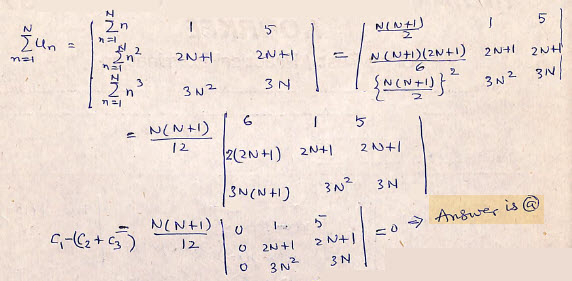 \sum_{n=1}^{N} U_n = | \sum_{n=1}^{N} n   1   5 ; \sum_{n=1}^{N} n^2   2N+1   2N+1 ; \sum_{n=1}^{N} n^3   3N^2   3N | = | \frac{N(N+1)}{2}   1   5 ; \frac{N(N+1)(2N+1)}{6}   2N+1   2N+1 ; \{\frac{N(N+1)}{2}\}^2   3N^2   3N |
= \frac{N(N+1)}{12} | 6   1   5 ; 2(2N+1)   2N+1   2N+1 ; 3N(N+1)   3N^2   3N |
C_1-(C_2+C_3) \frac{N(N+1)}{12} | 0   1   5 ; 0   2N+1   2N+1 ; 0   3N^2   3N | = 0 ⇒ Answer is ⓐ